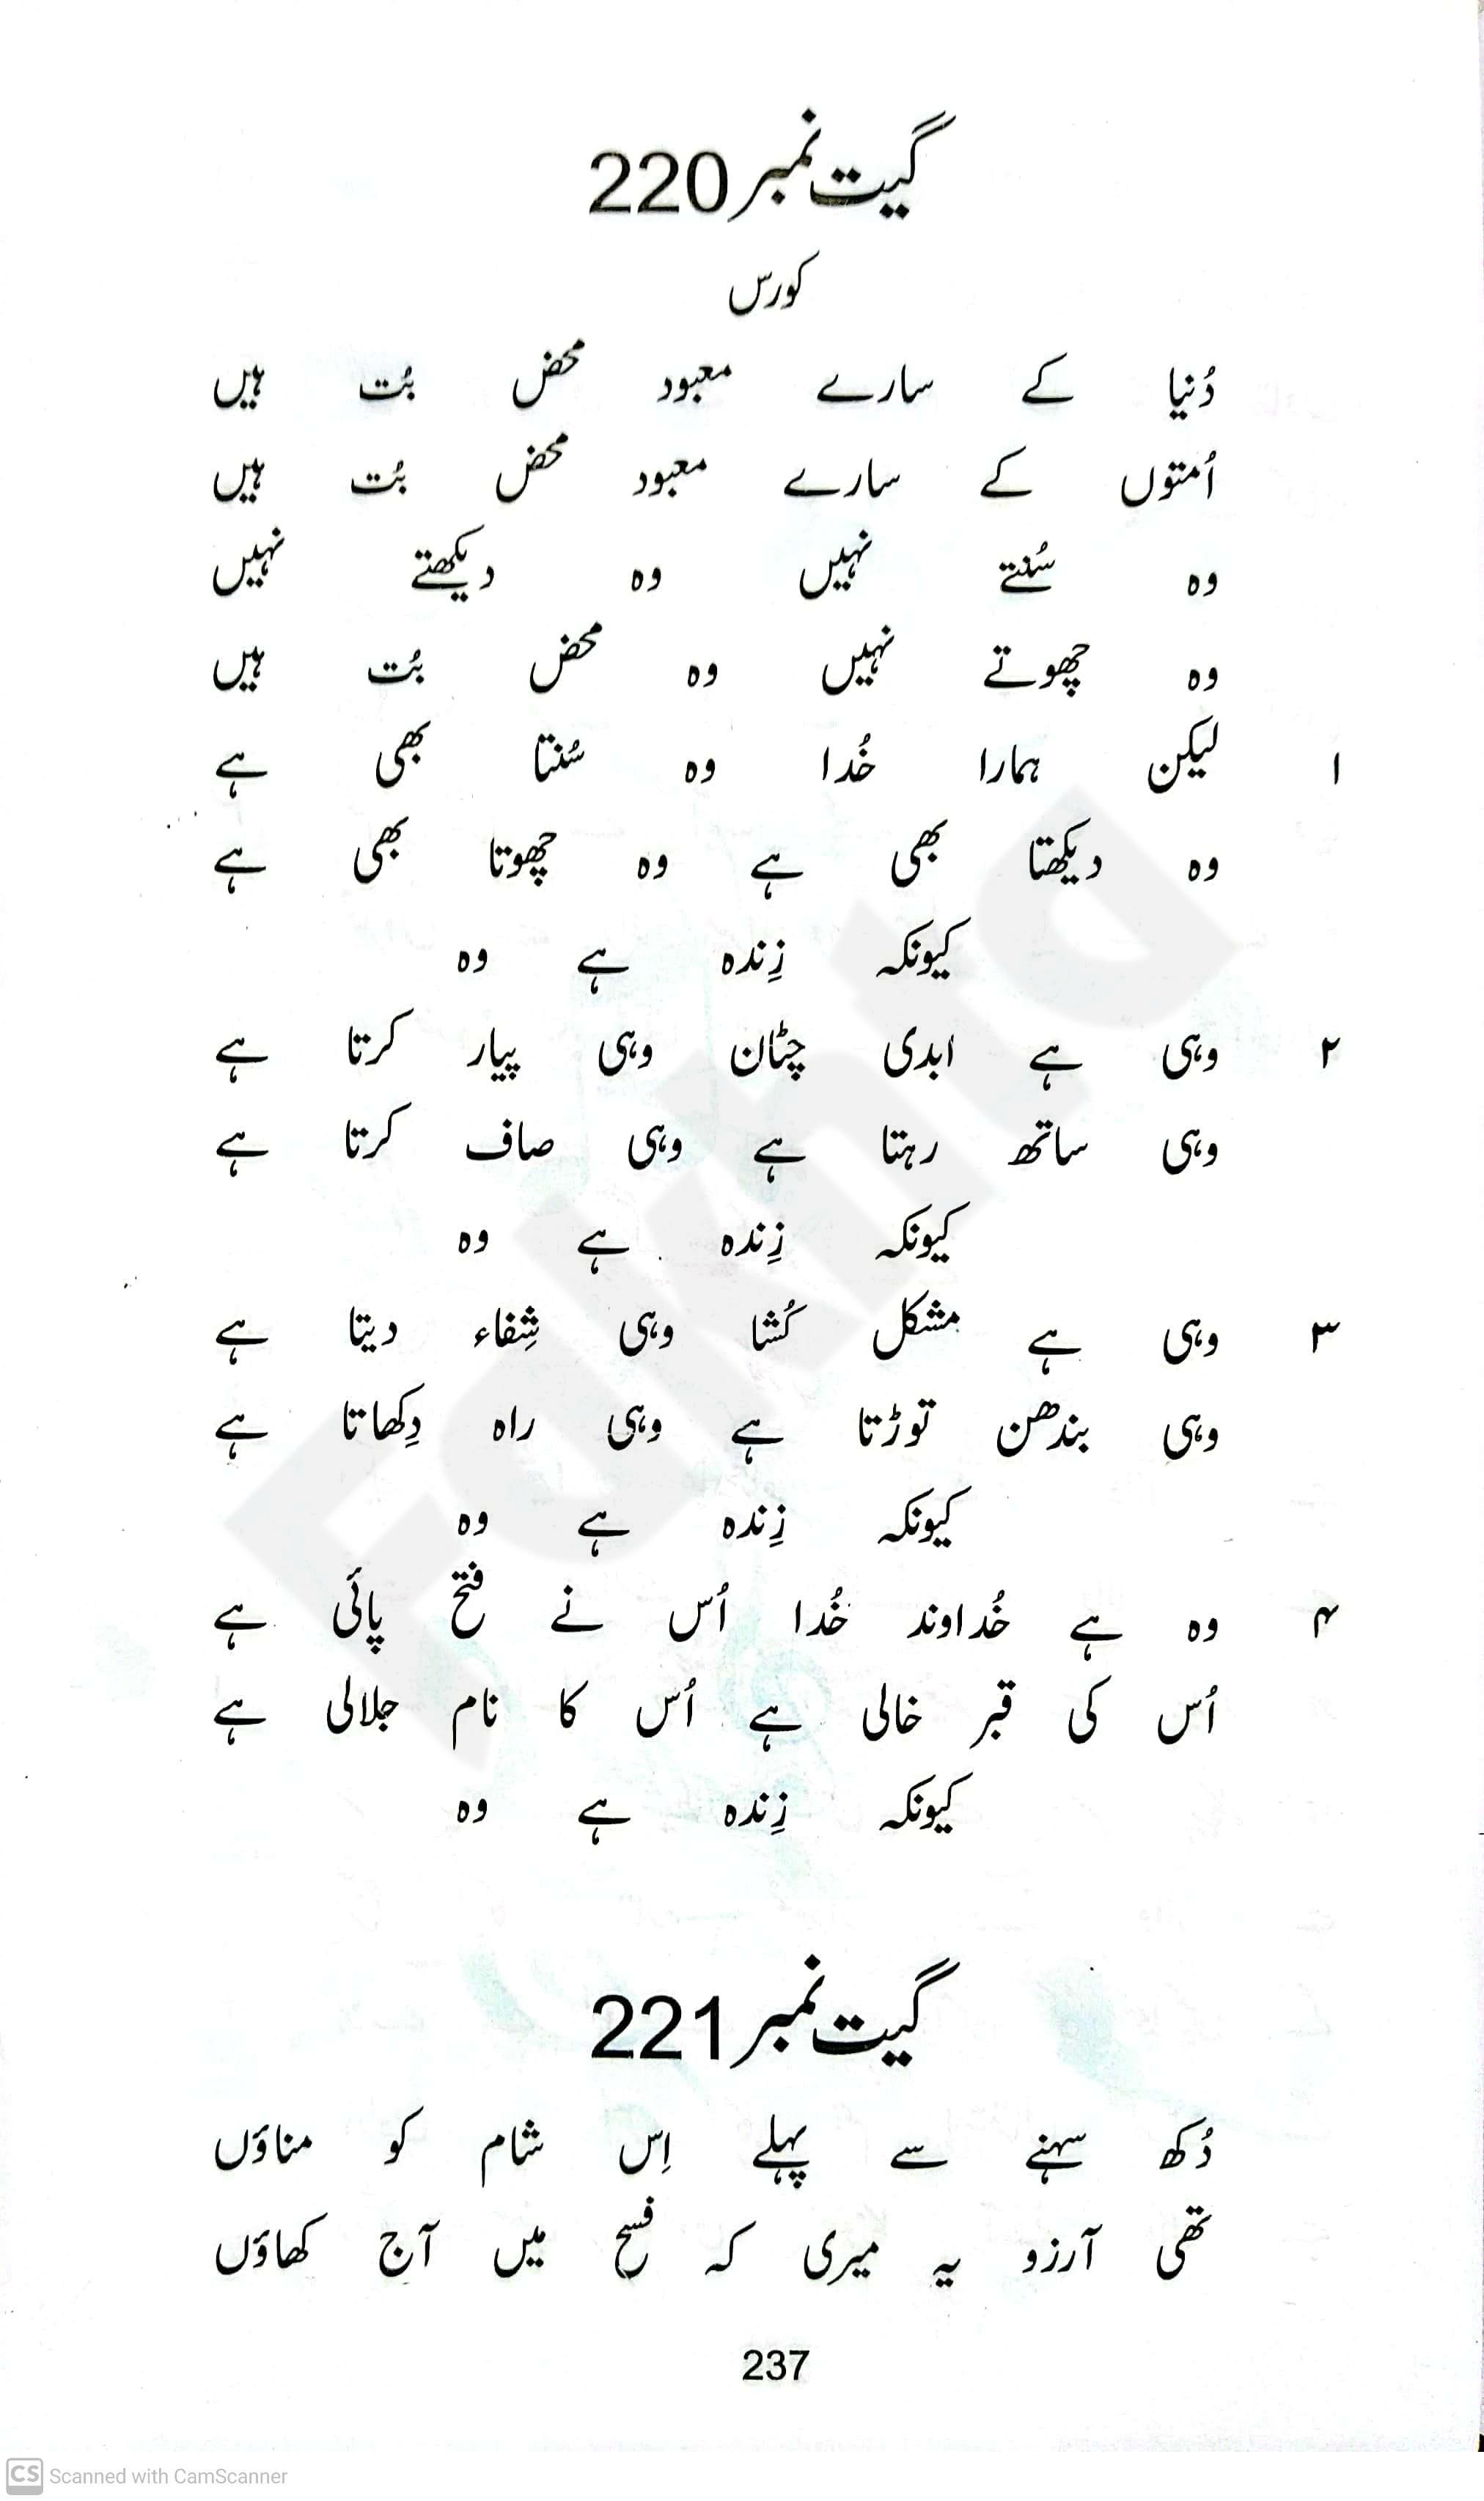 گیت نمبر 220
کورس
دُنیا کے سارے معبود محض بُت ہیں
اُمتوں کے سارے معبود محض بُت ہیں
وہ سُنتے نہیں وہ دیکھتے نہیں
وہ چھوتے نہیں وہ محض بُت ہیں
۱ لیکن ہمارا خُدا وہ سُنتا بھی ہے
وہ دیکھتا بھی ہے وہ چھوتا بھی ہے
کیونکہ زِندہ ہے وہ
۲ وہی ہے ابدی چٹان وہی پیار کرتا ہے
وہی ساتھ رہتا ہے وہی صاف کرتا ہے
کیونکہ زِندہ ہے وہ
۳ وہی ہے مشکل کُشا وہی شِفاء دیتا ہے
وہی بندھن توڑتا ہے وہی راہ دِکھاتا ہے
کیونکہ زِندہ ہے وہ
۴ وہ ہے خُداوند خُدا اُس نے فتح پائی ہے
اُس کی قبر خالی ہے اُس کا نام جلالی ہے
کیونکہ زِندہ ہے وہ
گیت نمبر 221
دُکھ سہنے سے پہلے اِس شام کو مناؤں
تھی آرزو یہ میری کہ فسح میں آج کھاؤں
237
Fakhta
CS Scanned with CamScanner